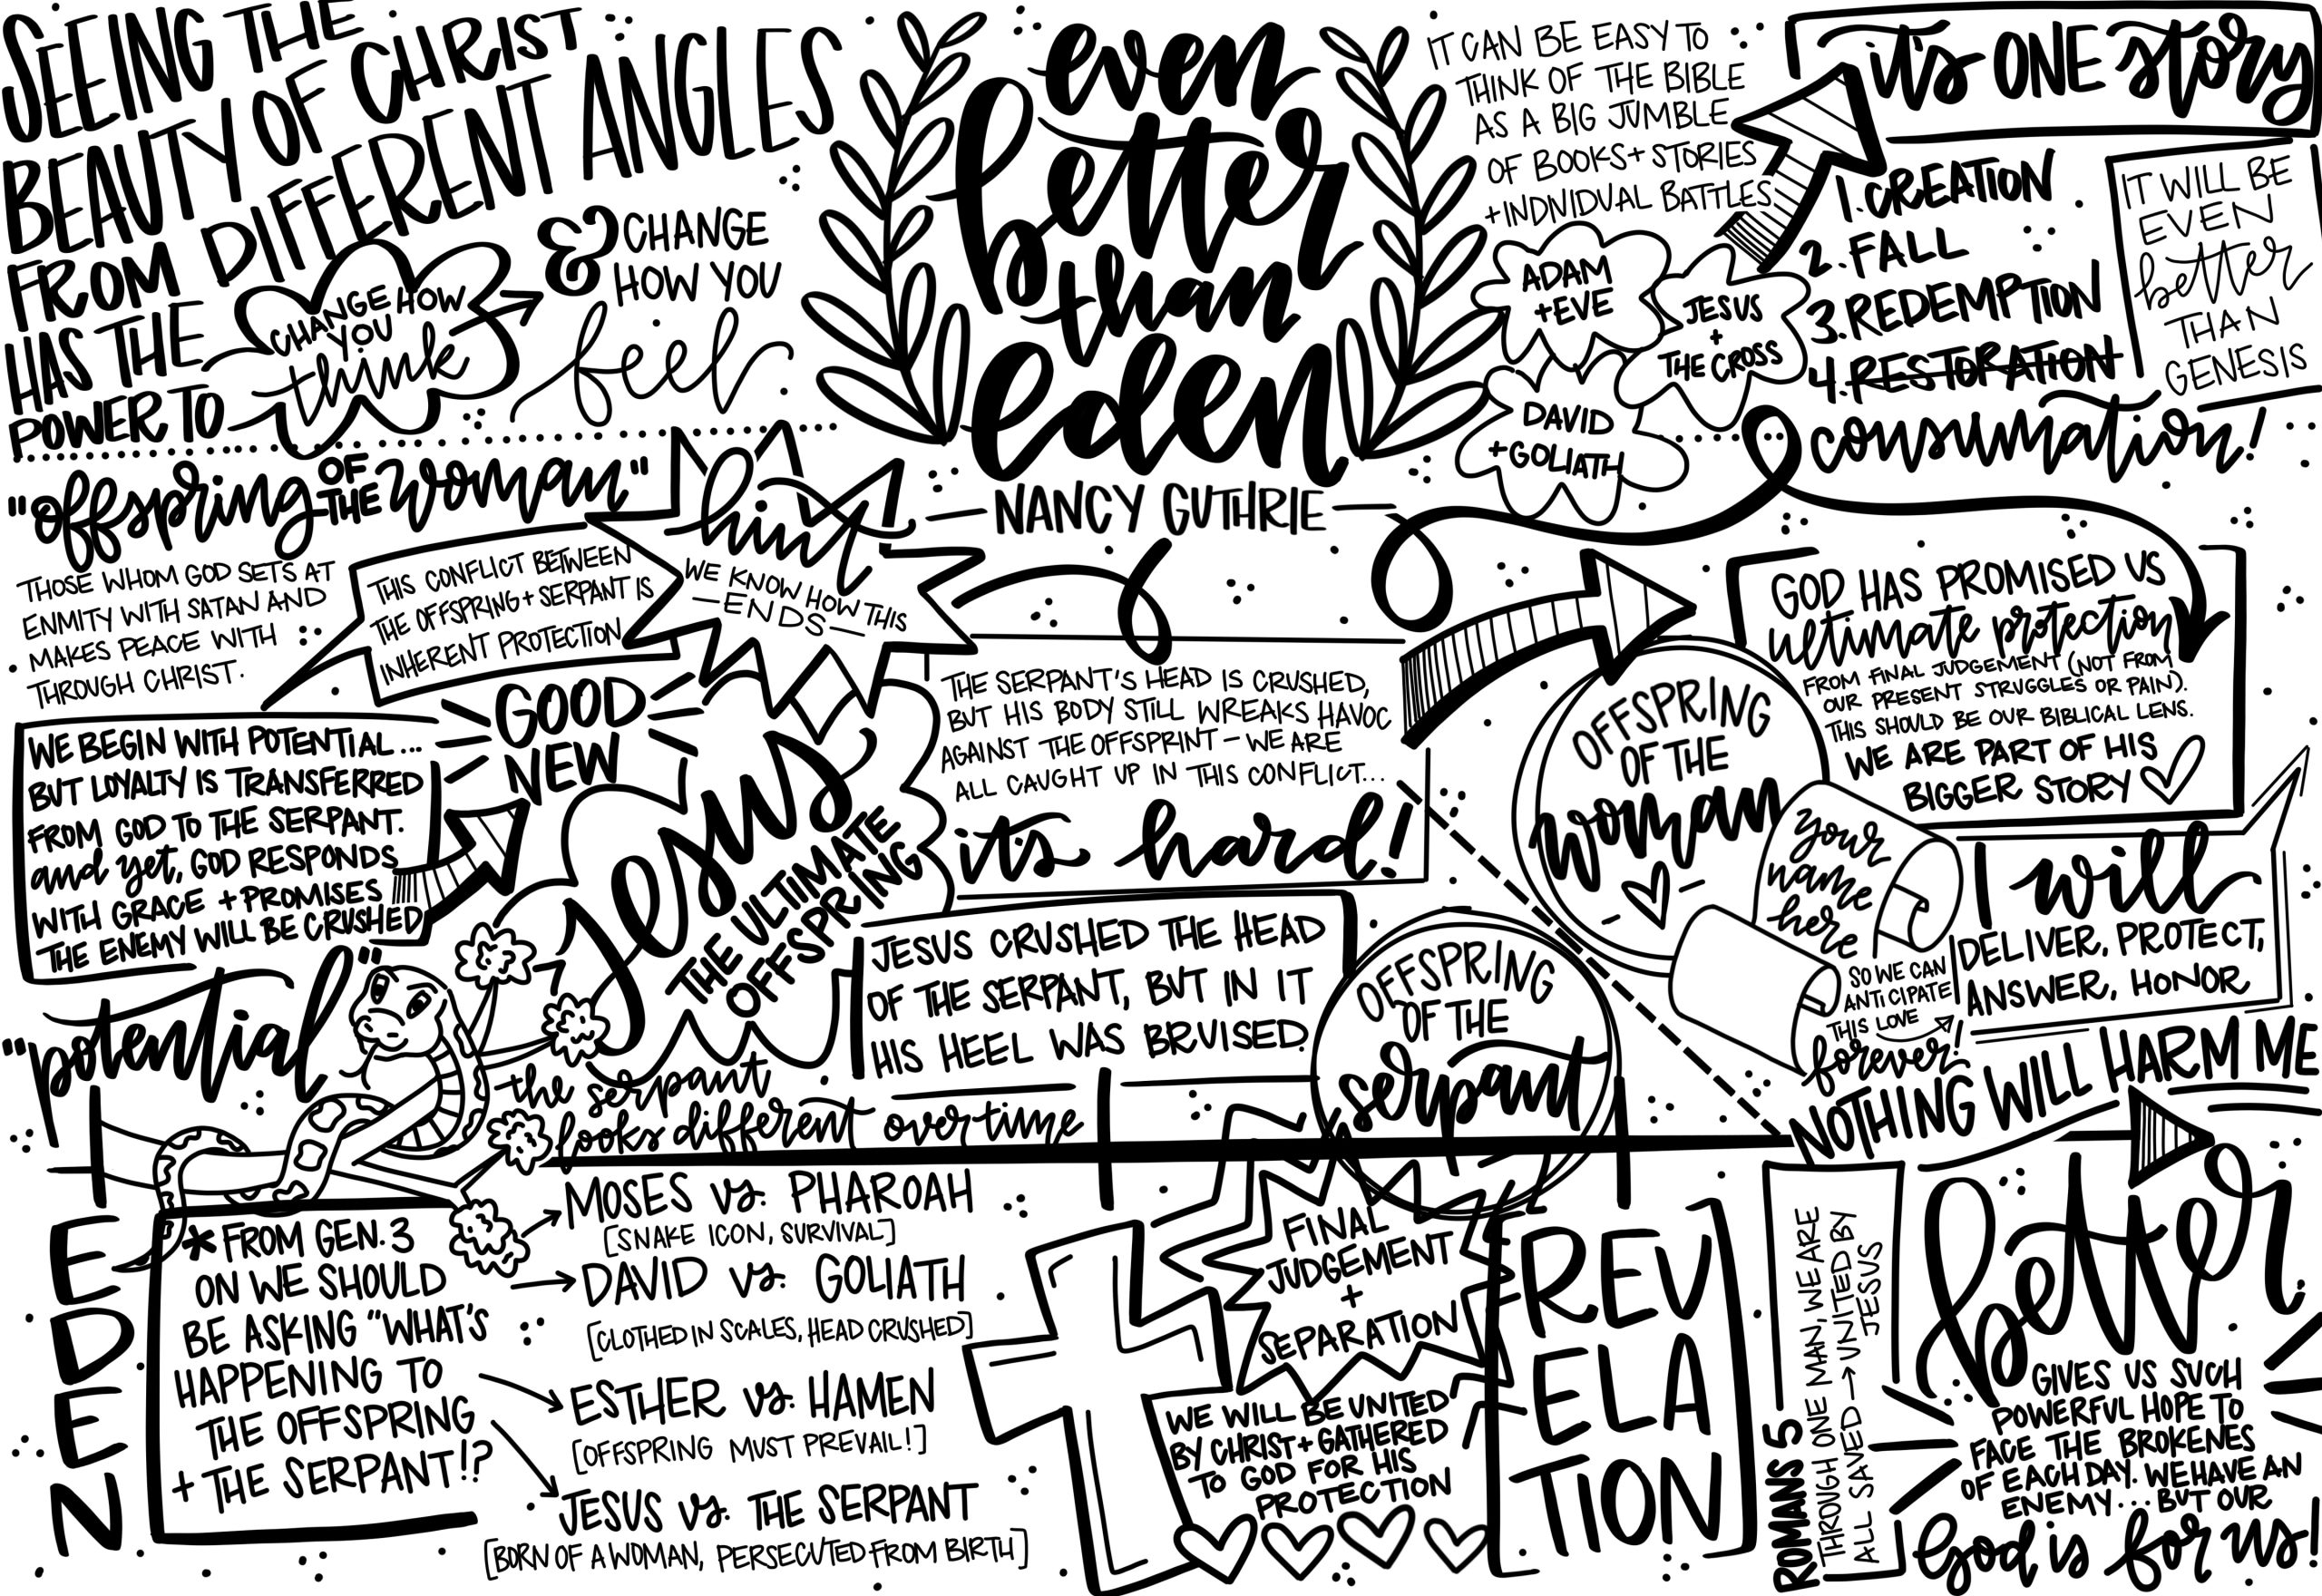 SEEING THE
BEAUTY OF CHRIST
FROM DIFFERENT ANGLES
HAS THE
POWER TO
CHANGE HOW
YOU
think
& CHANGE
HOW YOU
feel
even
better
than
eden
NANCY GUTHRIE
IT CAN BE EASY TO
THINK OF THE BIBLE
AS A BIG JUMBLE
OF BOOKS + STORIES
+ INDIVIDUAL BATTLES
ADAM
+ EVE
JESUS
+
THE CROSS
DAVID
+ GOLIATH
it's ONE story
1. CREATION
2. FALL
3. REDEMPTION
4. RESTORATION
consumation!
IT WILL BE
EVEN
better
THAN
GENESIS
"offspring OF THE woman"
THOSE WHOM GOD SETS AT
ENMITY WITH SATAN AND
MAKES PEACE WITH
THROUGH CHRIST.
THIS CONFLICT BETWEEN
THE OFFSPRING + SERPANT IS
INHERENT PROTECTION
hint!
WE KNOW HOW THIS
—ENDS—
WE BEGIN WITH POTENTIAL...
BUT LOYALTY IS TRANSFERRED
FROM GOD TO THE SERPANT.
and yet, GOD RESPONDS
WITH GRACE + PROMISES
THE ENEMY WILL BE CRUSHED
GOOD
NEW
Jesus
THE ULTIMATE
OFFSPRING
THE SERPANT'S HEAD IS CRUSHED,
BUT HIS BODY STILL WREAKS HAVOC
AGAINST THE OFFSPRINT — WE ARE
ALL CAUGHT UP IN THIS CONFLICT...
its hard!
JESUS CRUSHED THE HEAD
OF THE SERPANT, BUT IN IT
HIS HEEL WAS BRUISED.
OFFSPRING
OF THE
woman
your
name
here
GOD HAS PROMISED US
ultimate protection
FROM FINAL JUDGEMENT (NOT FROM
OUR PRESENT STRUGGLES OR PAIN).
THIS SHOULD BE OUR BIBLICAL LENS.
WE ARE PART OF HIS
BIGGER STORY
I will
DELIVER, PROTECT,
ANSWER, HONOR
SO WE CAN
ANTICIPATE
THIS LOVE
forever!
NOTHING WILL HARM ME
OFFSPRING
OF THE
serpant
"potential"
the serpant
looks different over time
EDEN
* FROM GEN. 3
ON WE SHOULD
BE ASKING "WHAT'S
HAPPENING TO
THE OFFSPRING
+ THE SERPANT!?
MOSES vs. PHAROAH
[SNAKE ICON, SURVIVAL]
DAVID vs. GOLIATH
[CLOTHED IN SCALES, HEAD CRUSHED]
ESTHER vs. HAMEN
[OFFSPRING MUST PREVAIL!]
JESUS vs. THE SERPANT
[BORN OF A WOMAN, PERSECUTED FROM BIRTH]
FINAL
JUDGEMENT
+
SEPARATION
WE WILL BE UNITED
BY CHRIST + GATHERED
TO GOD FOR HIS
PROTECTION
REV
ELA
TION
ROMANS 5
THROUGH ONE MAN, WE ARE
ALL SAVED → UNITED BY
JESUS
better
GIVES US SUCH
POWERFUL HOPE TO
FACE THE BROKENES
OF EACH DAY. WE HAVE AN
ENEMY... BUT OUR
God is for us!